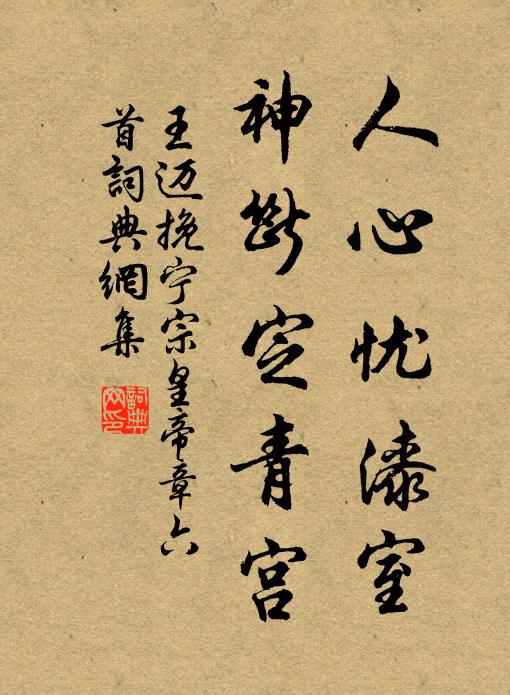 人心忧漆室
神断定青宫
王迈挽宁宗皇帝章六
首詞典網集
詞典
网印